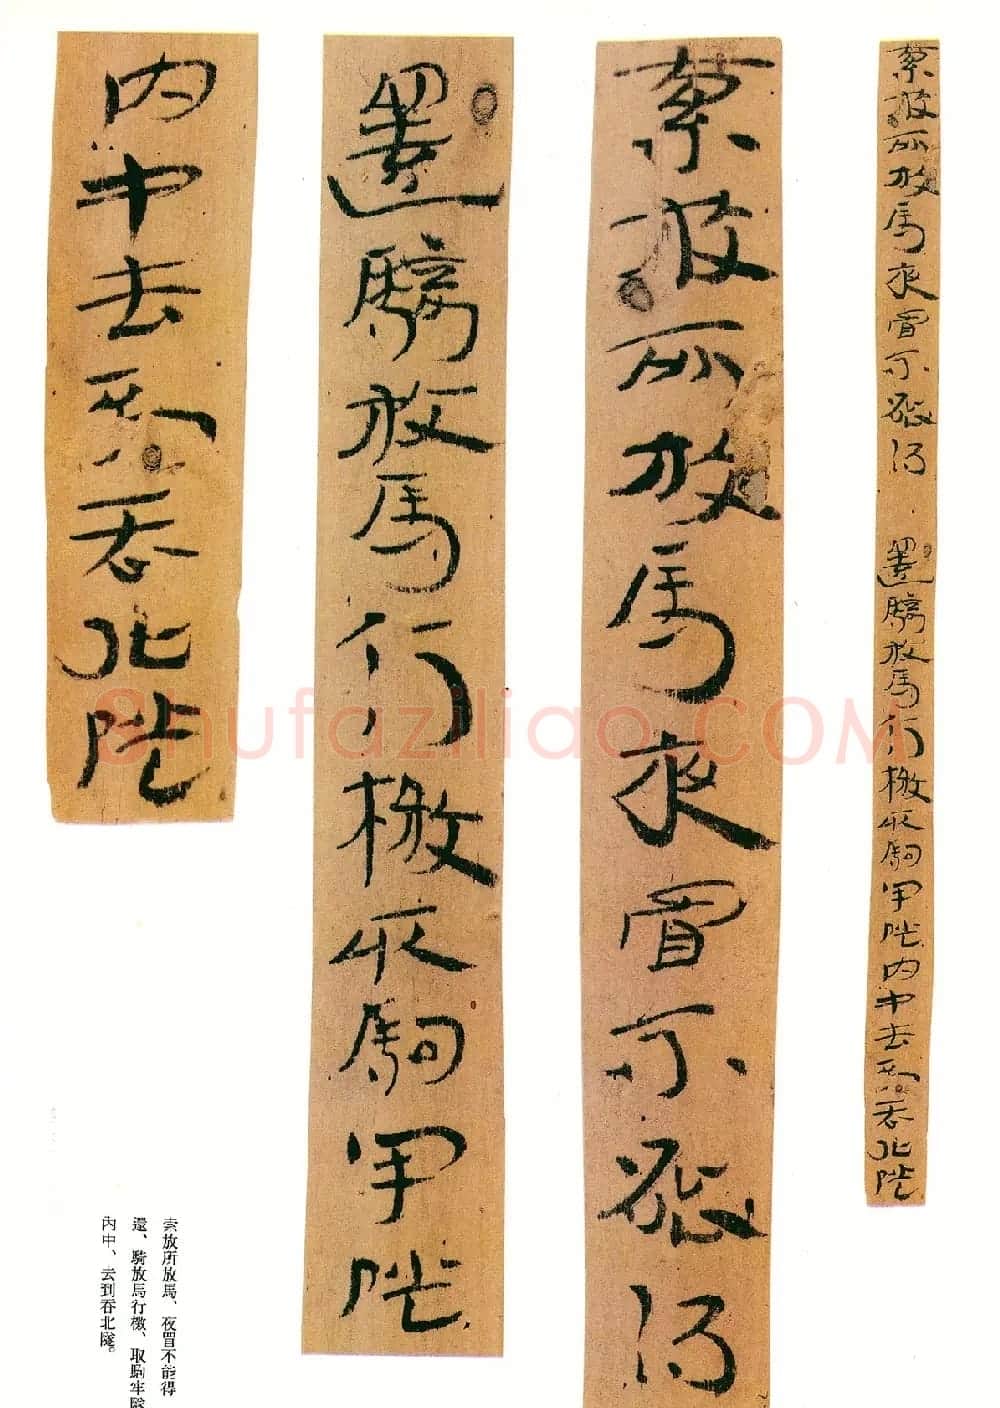 索放所放馬夜冒不能得
還騎放馬行檄取駒牢隧
內中去到吞北隧
索放所放馬夜冒不能得
還騎放馬行檄取駒牢隧
內中去到吞北隧
索放所放馬、夜冒不能得
還、騎放馬行檄、取駒牢隧
內中、去到吞北隧。
Shufaziliao.COM